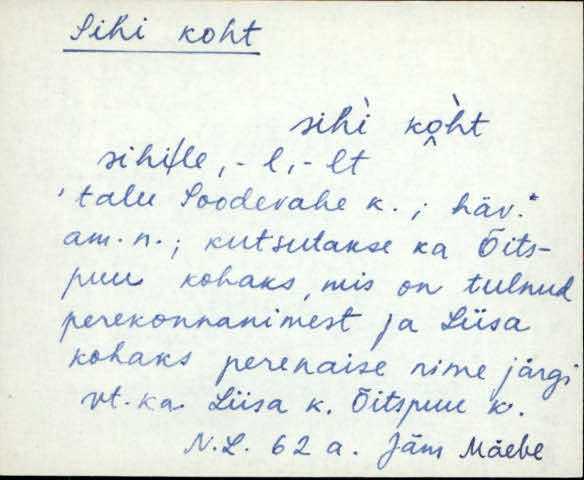 Sihi koht
sihì kòht
sihille, -l, -lt
'talu Soodevahe k.; häv.'
am. n.; kutsutakse ka Õits-
puu kohaks, mis on tulnud
perekonnanimest ja Liisa
kohaks perenaise nime järgi
vt. ka Liisa k. Õitspuu k.
N.L. 62 a. Jäm Mäebe